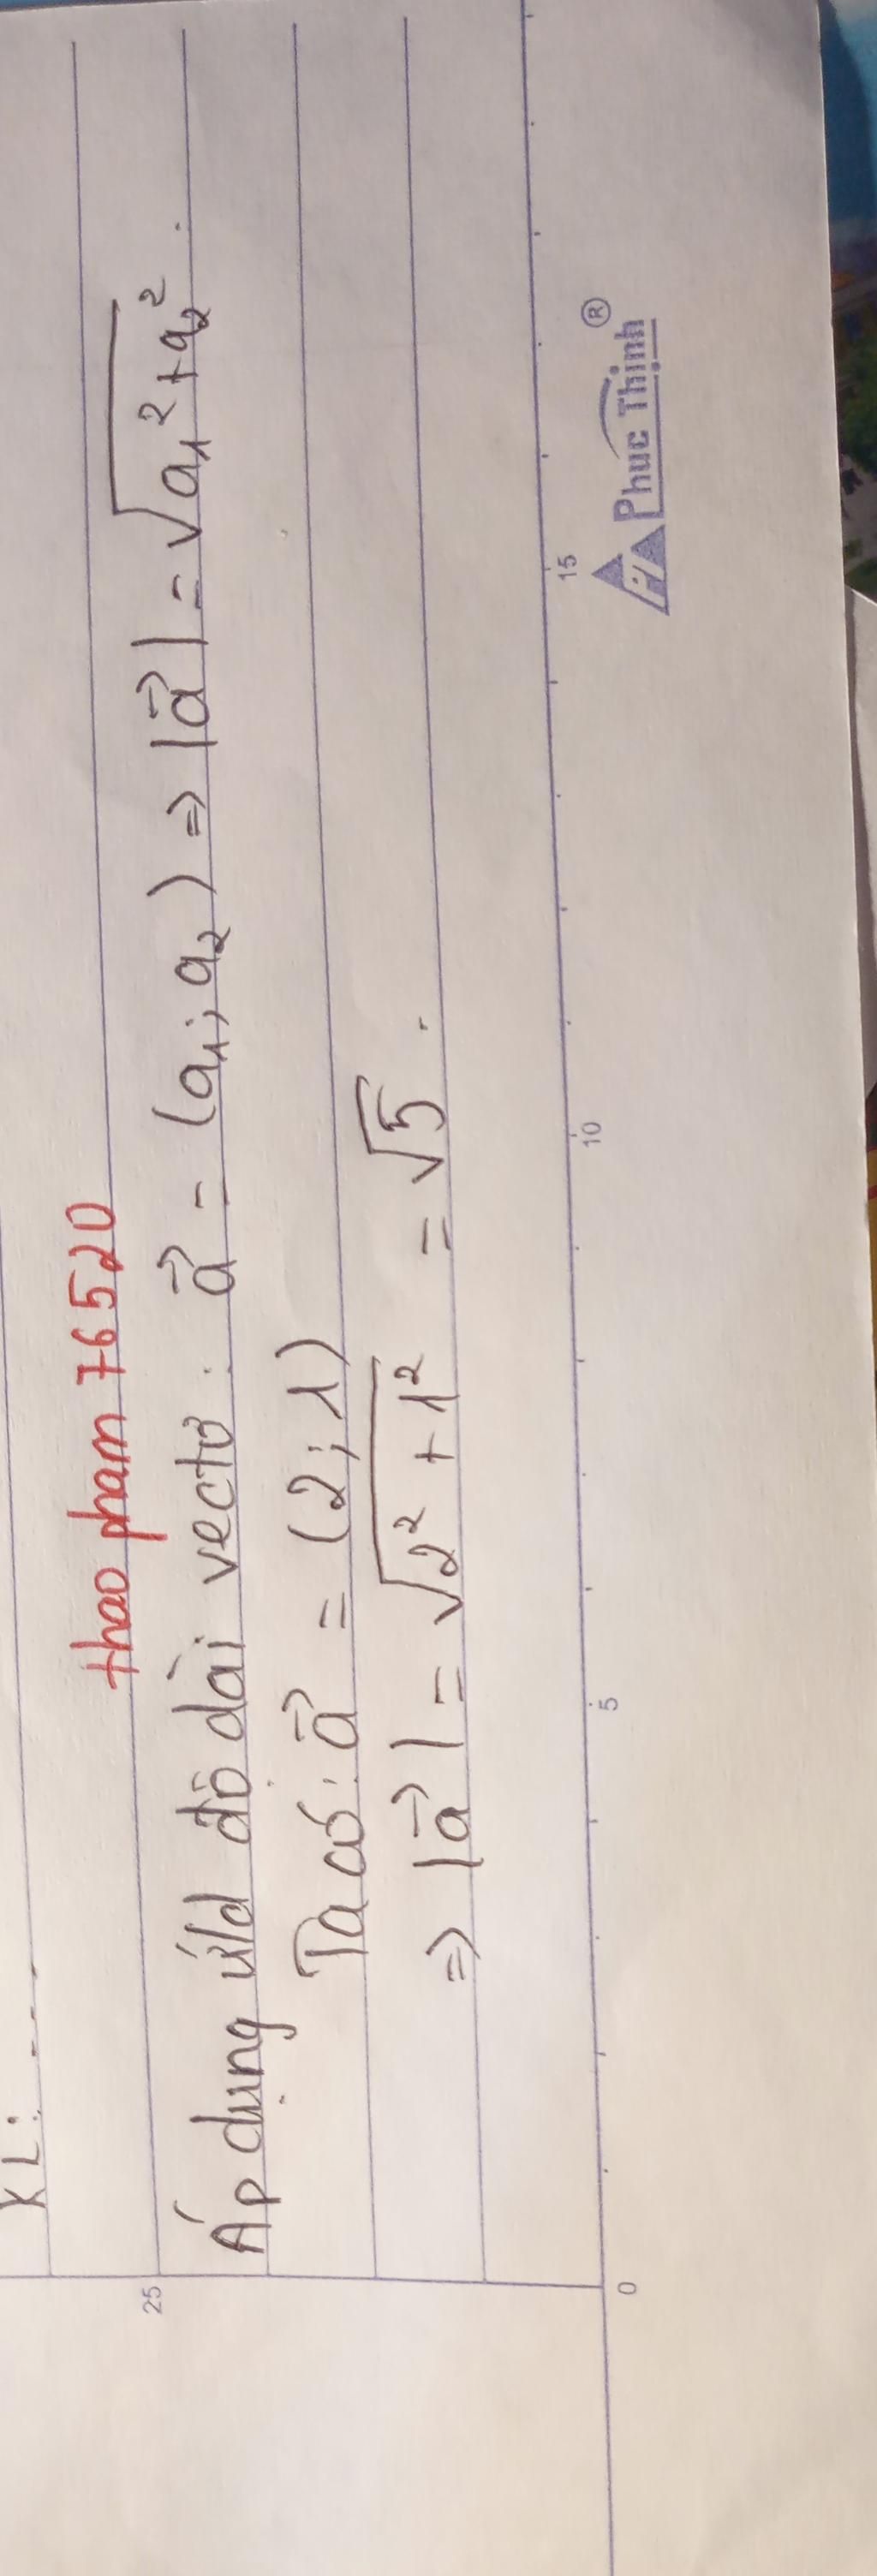 KL: ....
thao pham 76520
25
Áp dụng t/d độ dài vectơ. a⃗ = (a₁; a₂) => |a⃗| = √a₁² + a₂².
Ta có: a⃗ = (2; 1)
=> |a⃗| = √2² + 1² = √5.
0 5 10 15
Phuc Thịnh ®